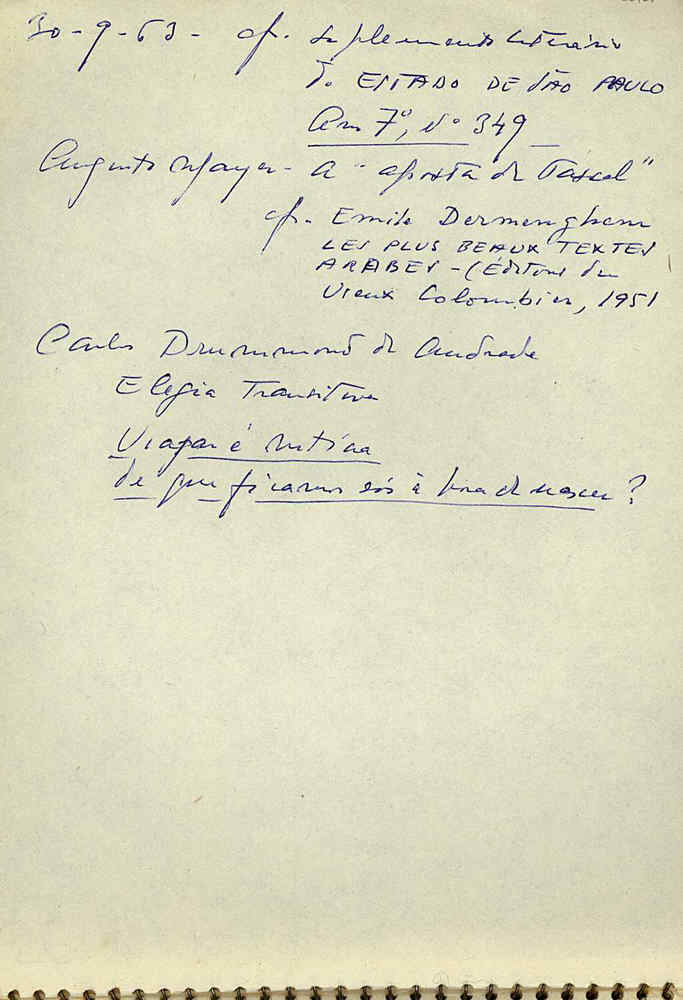 30-9-63 - cf. Suplemento Literário
d. ESTADO DE SÃO PAULO
Ano 7º, nº 349
Augusto Meyer - A "aposta de Pascal"
cf. Emile Dermenghem
LES PLUS BEAUX TEXTES
ARABES - (Éditions du
Vieux Colombier, 1951
Carlos Drummond de Andrade
Elegia Transitiva
Viajar é notícia
de que ficamos sós à hora de nascer?